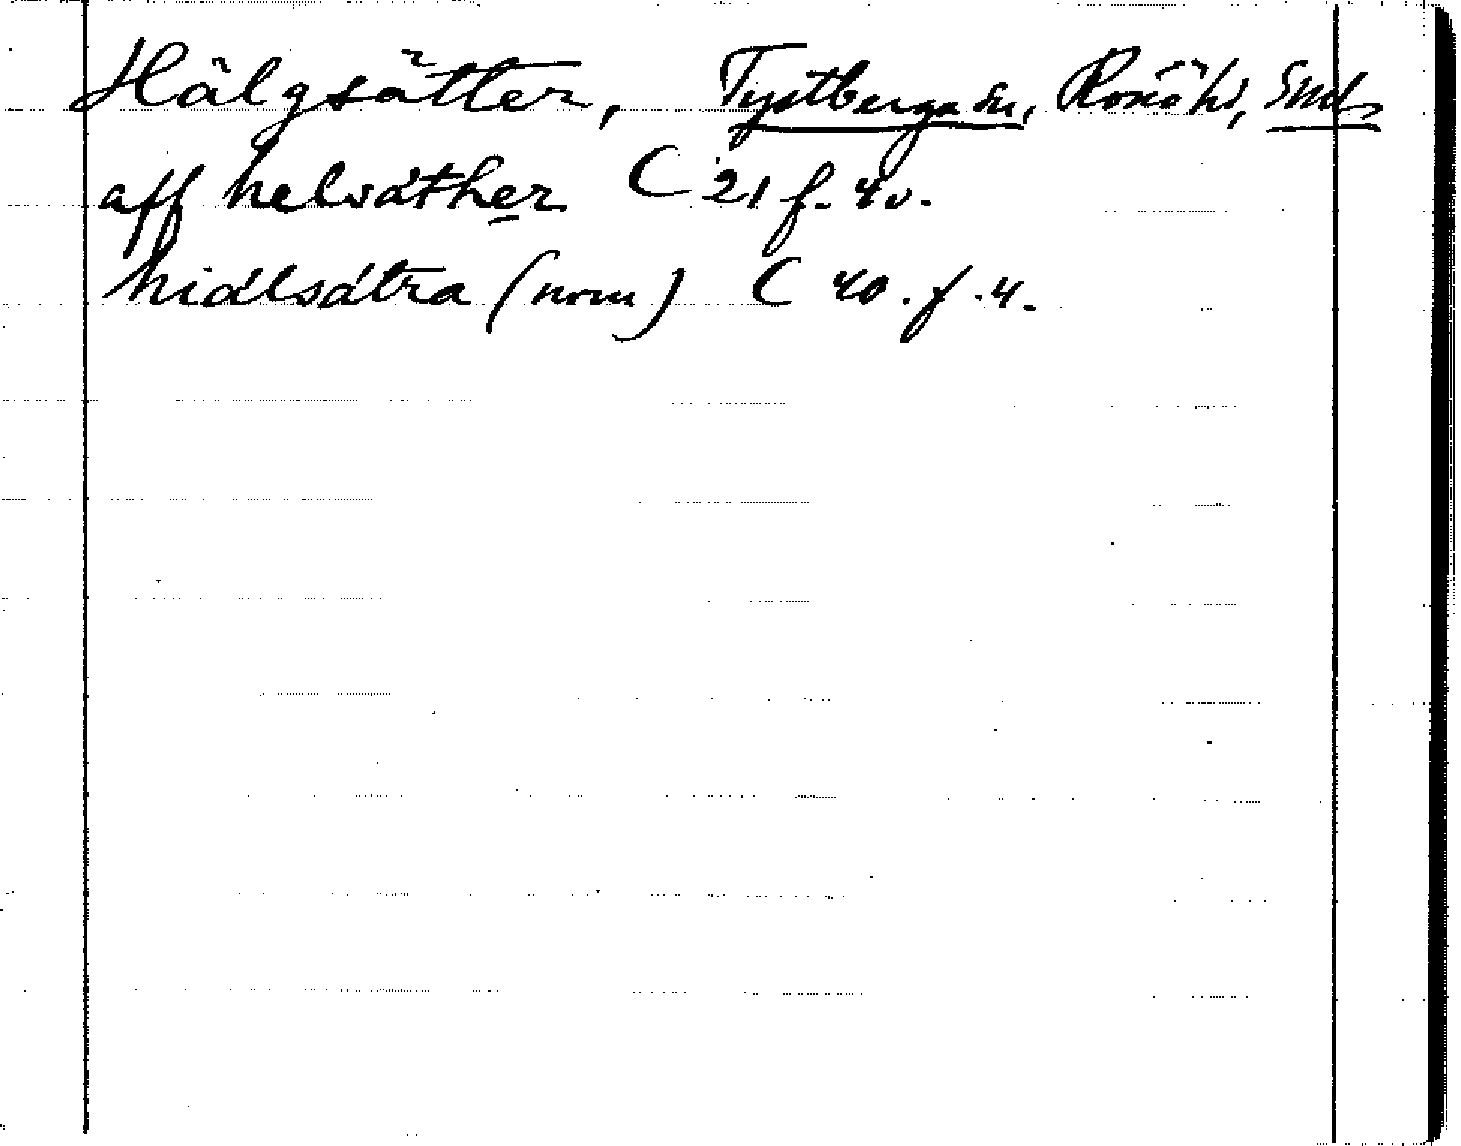 Hälgsätter, Tystberga sn, Rönö hd, Smd
aff helsáther C 21 f. 40.
hiálsátra (nom) C 40. f. 4.